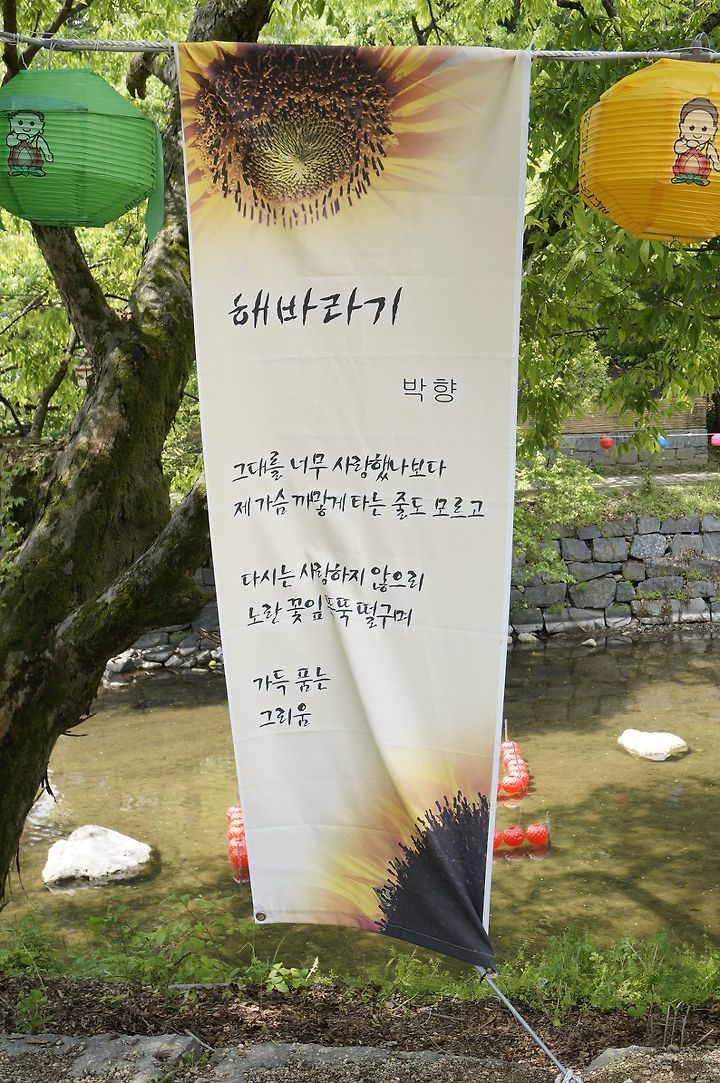 해바라기
박향
그대를 너무 사랑했나보다
제 가슴 까맣게 타는 줄도 모르고
다시는 사랑하지 않으리
노란 꽃잎 뚝뚝 떨구며
가득 품는
그리움